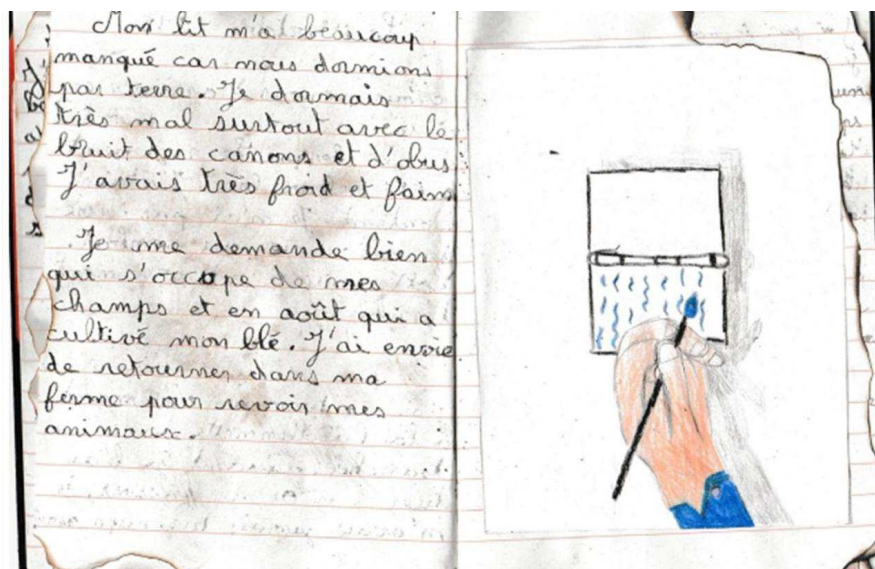 Mon lit m'a beaucoup
manqué car nous dormions
par terre. Je dormais
très mal surtout avec le
bruit des canons et d'obus
J'avais très froid et faim
Je me demande bien
qui s'occupe de mes
champs et en août qui a
cultivé mon blé. J'ai envie
de retourner dans ma
ferme pour revoir mes
animaux.